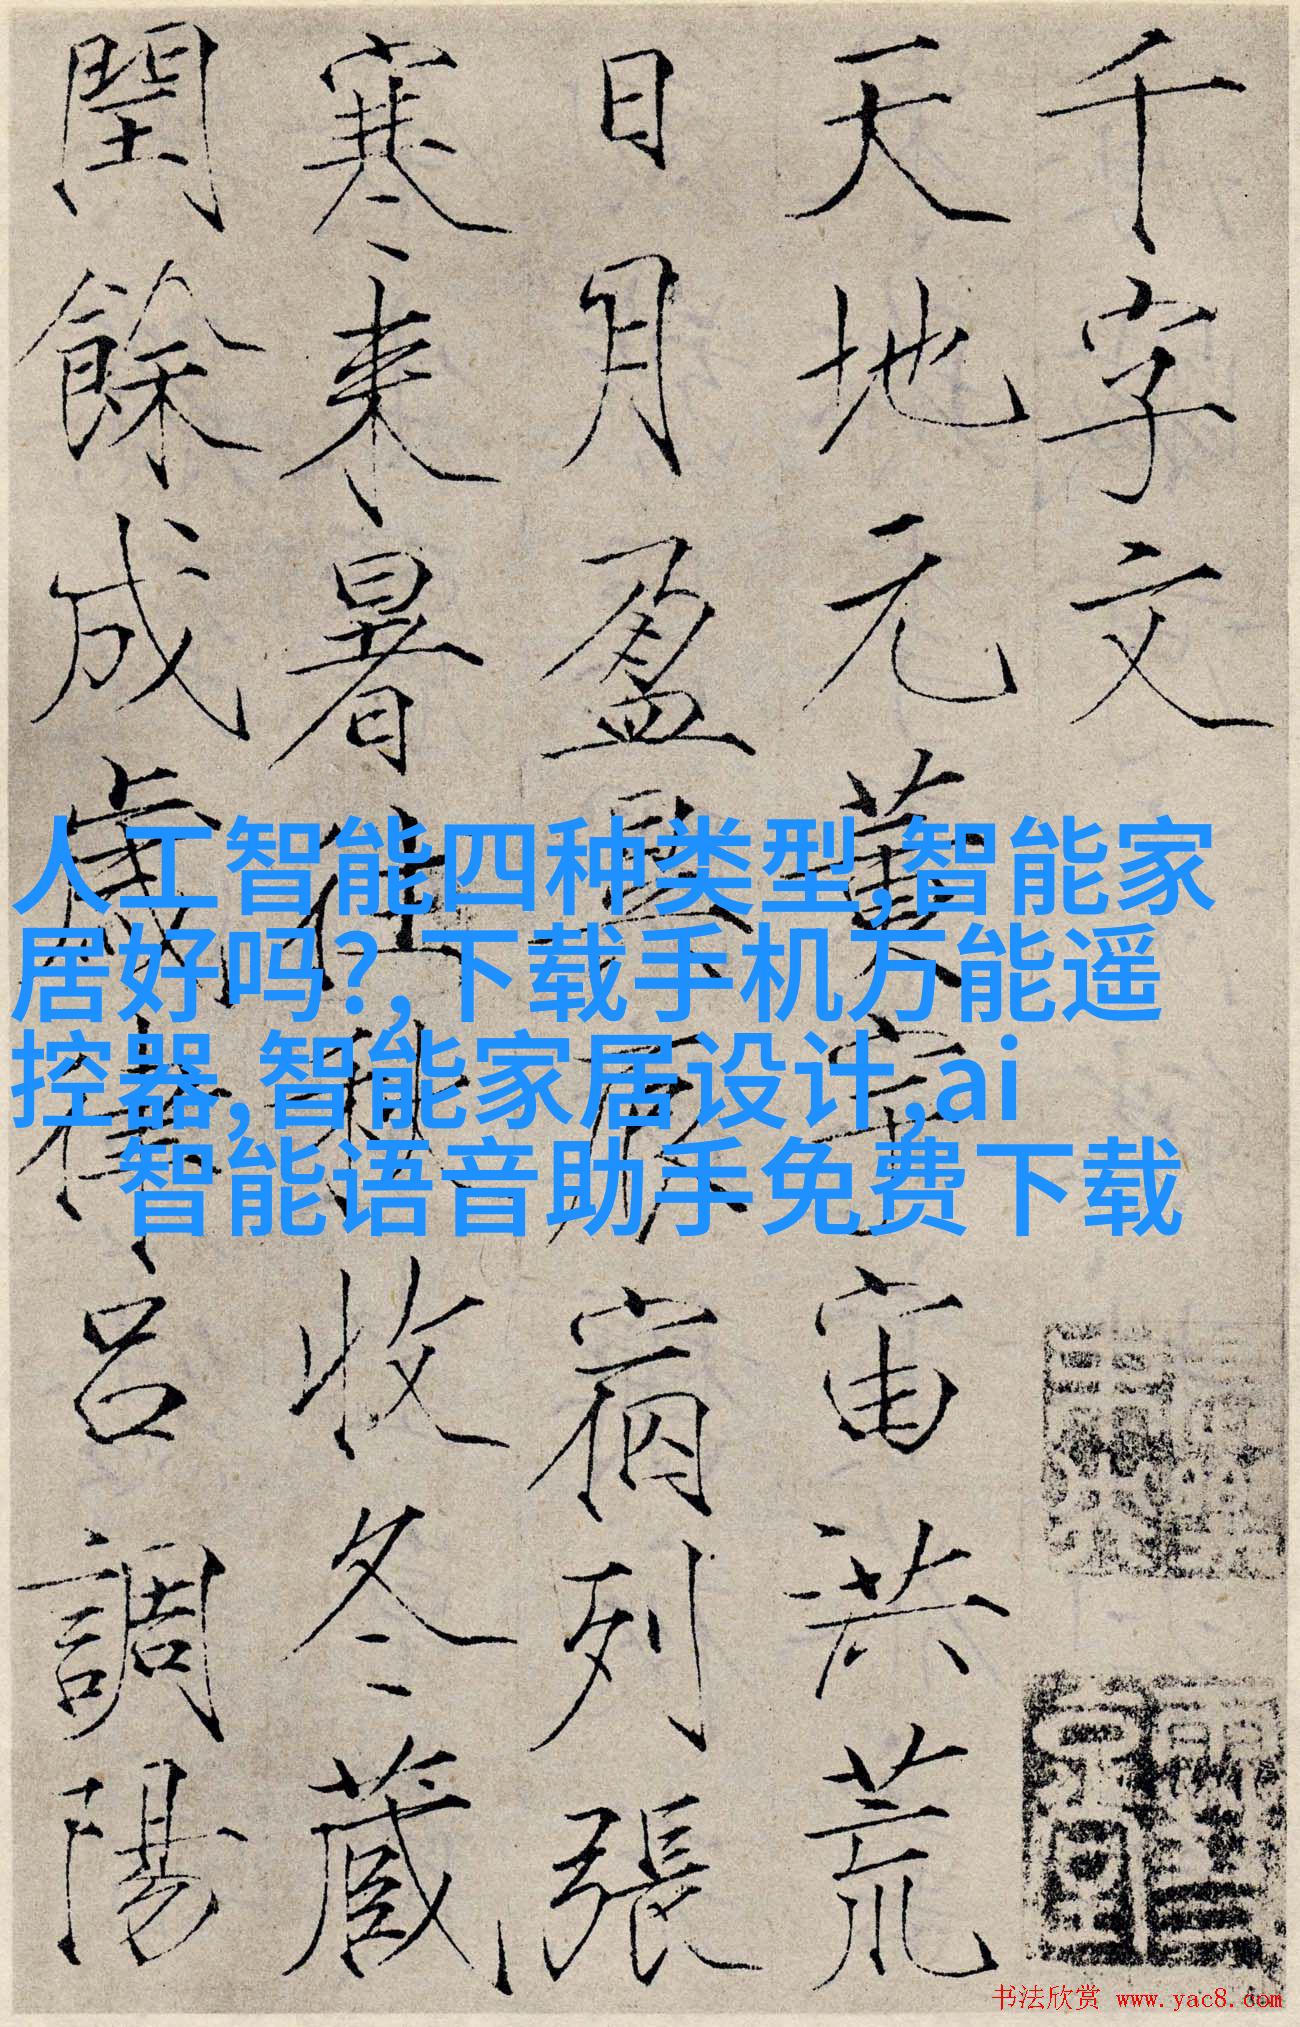 千字文
天地元黃宇宙洪荒
日月盈昃辰宿列張
寒来暑往秋收冬藏
閏餘成歲律吕調陽
人工智能四种类型,智能家
居好吗?,下载手机万能遥
控器,智能家居设计,ai
智能语音助手免费下载
书法欣赏 www.yac8.com